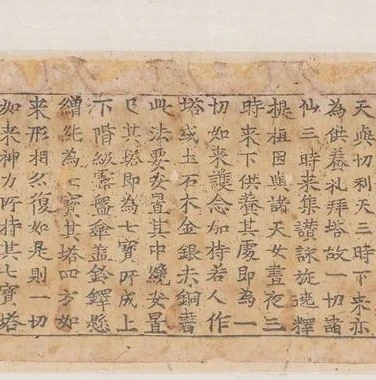 天與忉利天三時下來亦
為供養礼拜塔故一切諸
仙三時來集讃詠旋遶釋
提桓因與諸天女晝夜三
時來下供養其處即為一
切如來護念加持若人作
塔或土石木金銀赤銅書
此法要安置其中纔安置
已其塔即為七寶所成上
下階級露盤傘蓋鈴鐸懸
繒純為七寶其塔四方如
來形相亦復如是則一切
如來神力所持其七寶塔